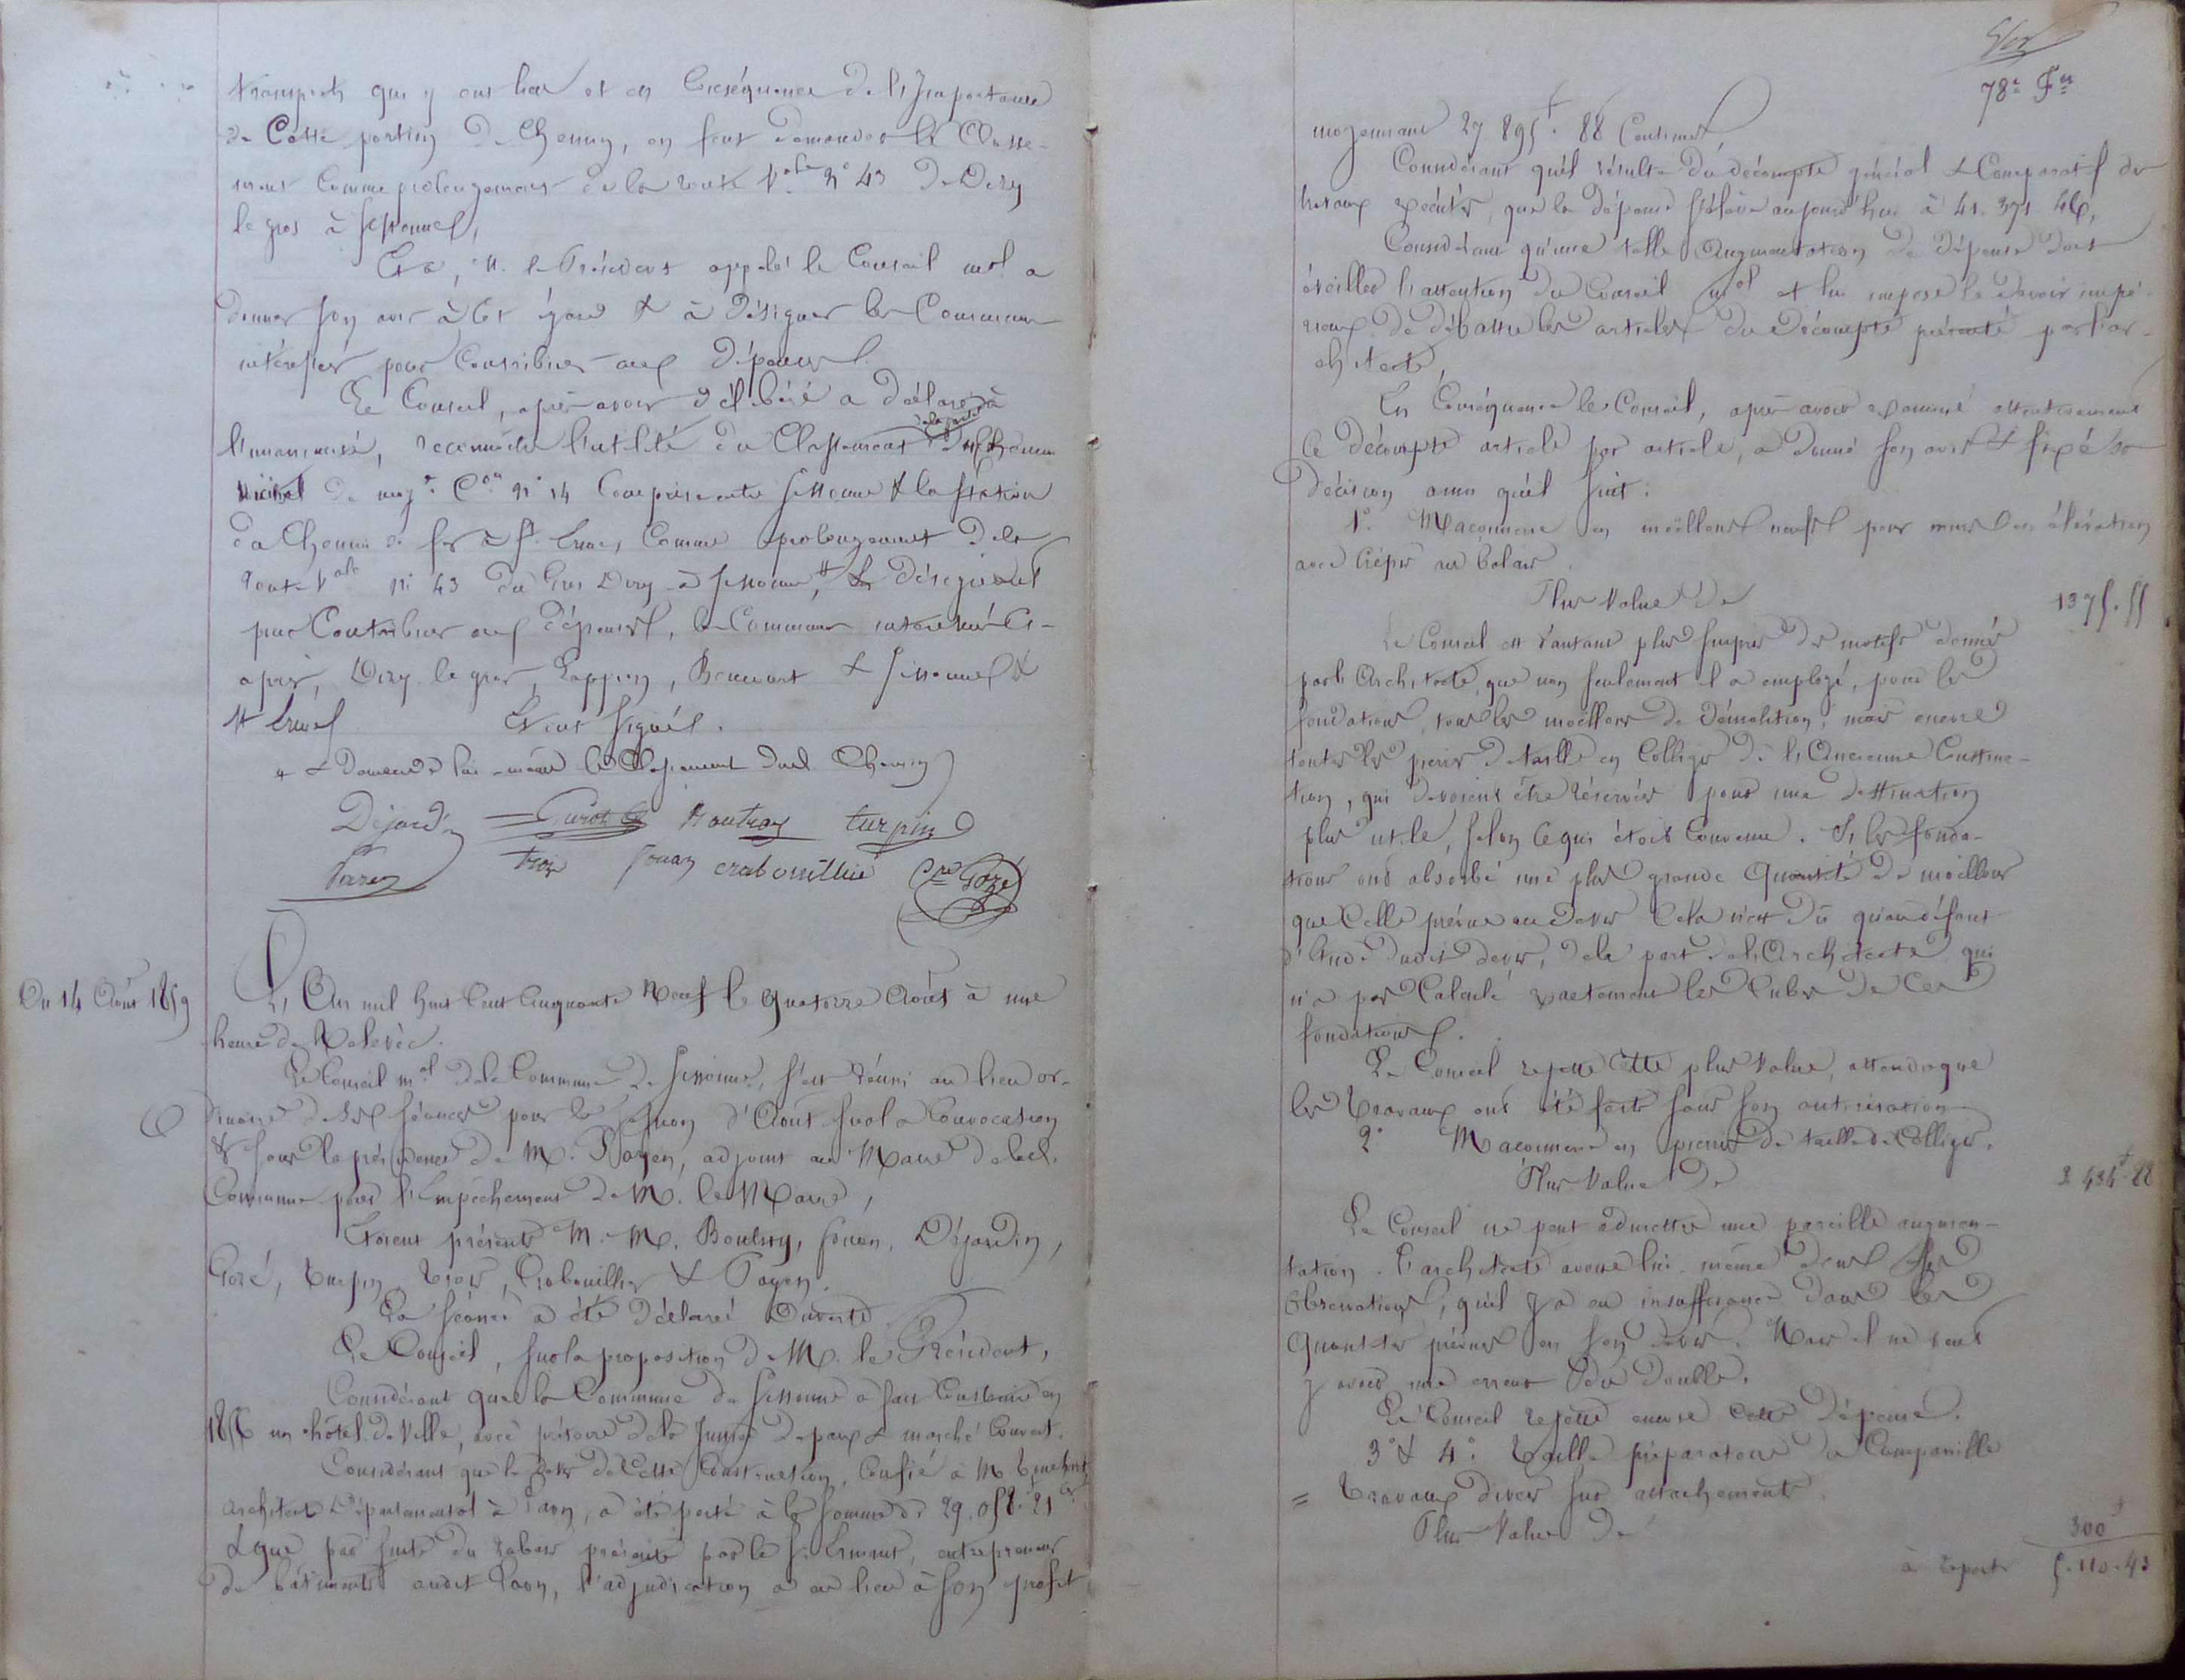 transports qui y ont lieu et en Conséquence de l'Importance
de Cette portion de Chemin, on peut demander le Classe-
ment Comme prolongement de la route V.ale N° 43 de Dizy
le gros à Sissonne,
M. le Président appelé le Conseil mal a
donner son avis à Cet égard & à désigner les Communes
intéressées pour Contribuer aux dépenses.
Le Conseil, après avoir délibéré a déclaré à
l'unanimité, reconnaître l'utilité du Classement de la partie du Chemin
vicinal de moy. Con n° 14 Comprise entre Sissonne & la Station
du Chemin de fer à St. Erme, Comme prolongement de la
Route V.ale n° 43 du Gros Dizy à Sissonne, # & désigne
pour Contribuer aux dépenses, les Communes intéressées Ci-
après, Dizy le gros, Lappion, Boncourt & Sissonne &
St Erme Et ont Signé.
# & Demande lui-même le Classement dud. Chemin
Déjardin Turpin
Payen Troix Jouan crabouillier Goré
Du 14 Août 1859
L'An mil huit Cent Cinquante Neuf le quatorze Août à une
heure de Relevée.
Le Conseil mal de la Commune de Sissonne, s'est réuni au lieu or-
dinaire de ses séances pour la session d'Août sur la Convocation
& sous la présidence de M. Payen, adjoint au Maire de lad.
Commune pour l'Empêchement de M. le Maire,
Etoient présents M. M. Boutroy, Jouan, Déjardin,
Goré, Turpin, Troix, Crabouillier & Payen.
La Séance a été déclarée Ouverte.
Le Conseil, sur la proposition de M. le Président,
Considérant que la Commune de Sissonne a fait Construire en
1856 un hôtel de Ville, avec prétoire de la Justice de paix & marché Couvert.
Considérant que le devis de Cette Construction, Confié à M.
architecte Départemental à Laon, a été porté à la somme de 29.058.21
& que par suite du rabais présenté par le S. Ermant, entrepreneur
de bâtiments audit Laon, l'adjudication a eu lieu à son profit
78e Fet
moyennant 27 895f. 88 Centimes
Considérant qu'il résulte du décompte général & Comparatif des
travaux exécutés, que la dépense s'élève aujourd'hui à 41.371.46,
Considérant qu'une telle Augmentation de dépense doit
éveiller l'attention du Conseil mal et lui impose le devoir impé-
rieux de débattre les articles du Décompte présenté par l'ar-
chitecte,
En Conséquence le Conseil, après avoir examiné attentivement
Ce décompte article par article, a donné son avis & fixé sa
décision ainsi qu'il suit:
1°. Maçonnerie en moëllons neufs pour murs en élévation
avec Crépis au balais.
Plus Value de 1375.55
Le Conseil est d'autant plus surpris des motifs donnés
par l'Architecte, que non seulement il a employé, pour les
fondations, tous les moëllons de Démolition, mais encore
toutes les pierres de taille en Colligis de l'Ancienne Construc-
tion, qui devoient être réservées pour une destination
plus utile, selon Ce qui étoit Convenu. Si les fonda-
tions ont absorbé une plus grande Quantité de moëllons
que Celle prévue au devis Cela n'est dû qu'au défaut
d'étude dudit devis, de la part de l'Architecte qui
n'a pas Calculé exactement les Cubes de Ces
fondations.
Le Conseil rejette Cette plus Value, attendu que
les travaux ont été faits sans son autorisation.
2° Maçonnerie en pierres de taille de Colligis.
Plus Value de 3 434f.88
Le Conseil ne peut admettre une pareille augmen-
tation. L'architecte avoue lui-même dans ses
Observations, qu'il y a eu insuffisance dans les
Quantités prévues en son devis. Mais il ne peut
y avoir une erreur du double.
Le Conseil rejette encore Cette dépense.
3° & 4°. Taille préparatoire du Campanille
= Travaux divers sur attachements.
Plus Value de 300f
à reporter 5.110.43